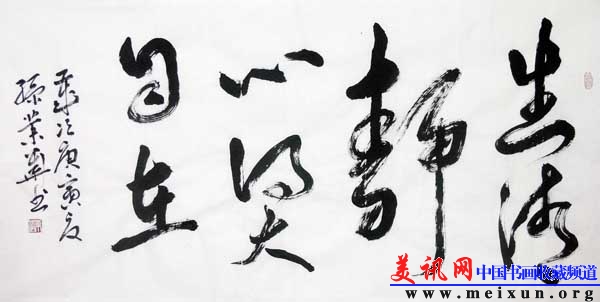 生清
静
心得大
自在
歲次庚寅夏
孫業書
美讯网 中国书画收藏频道
www.meixun.org